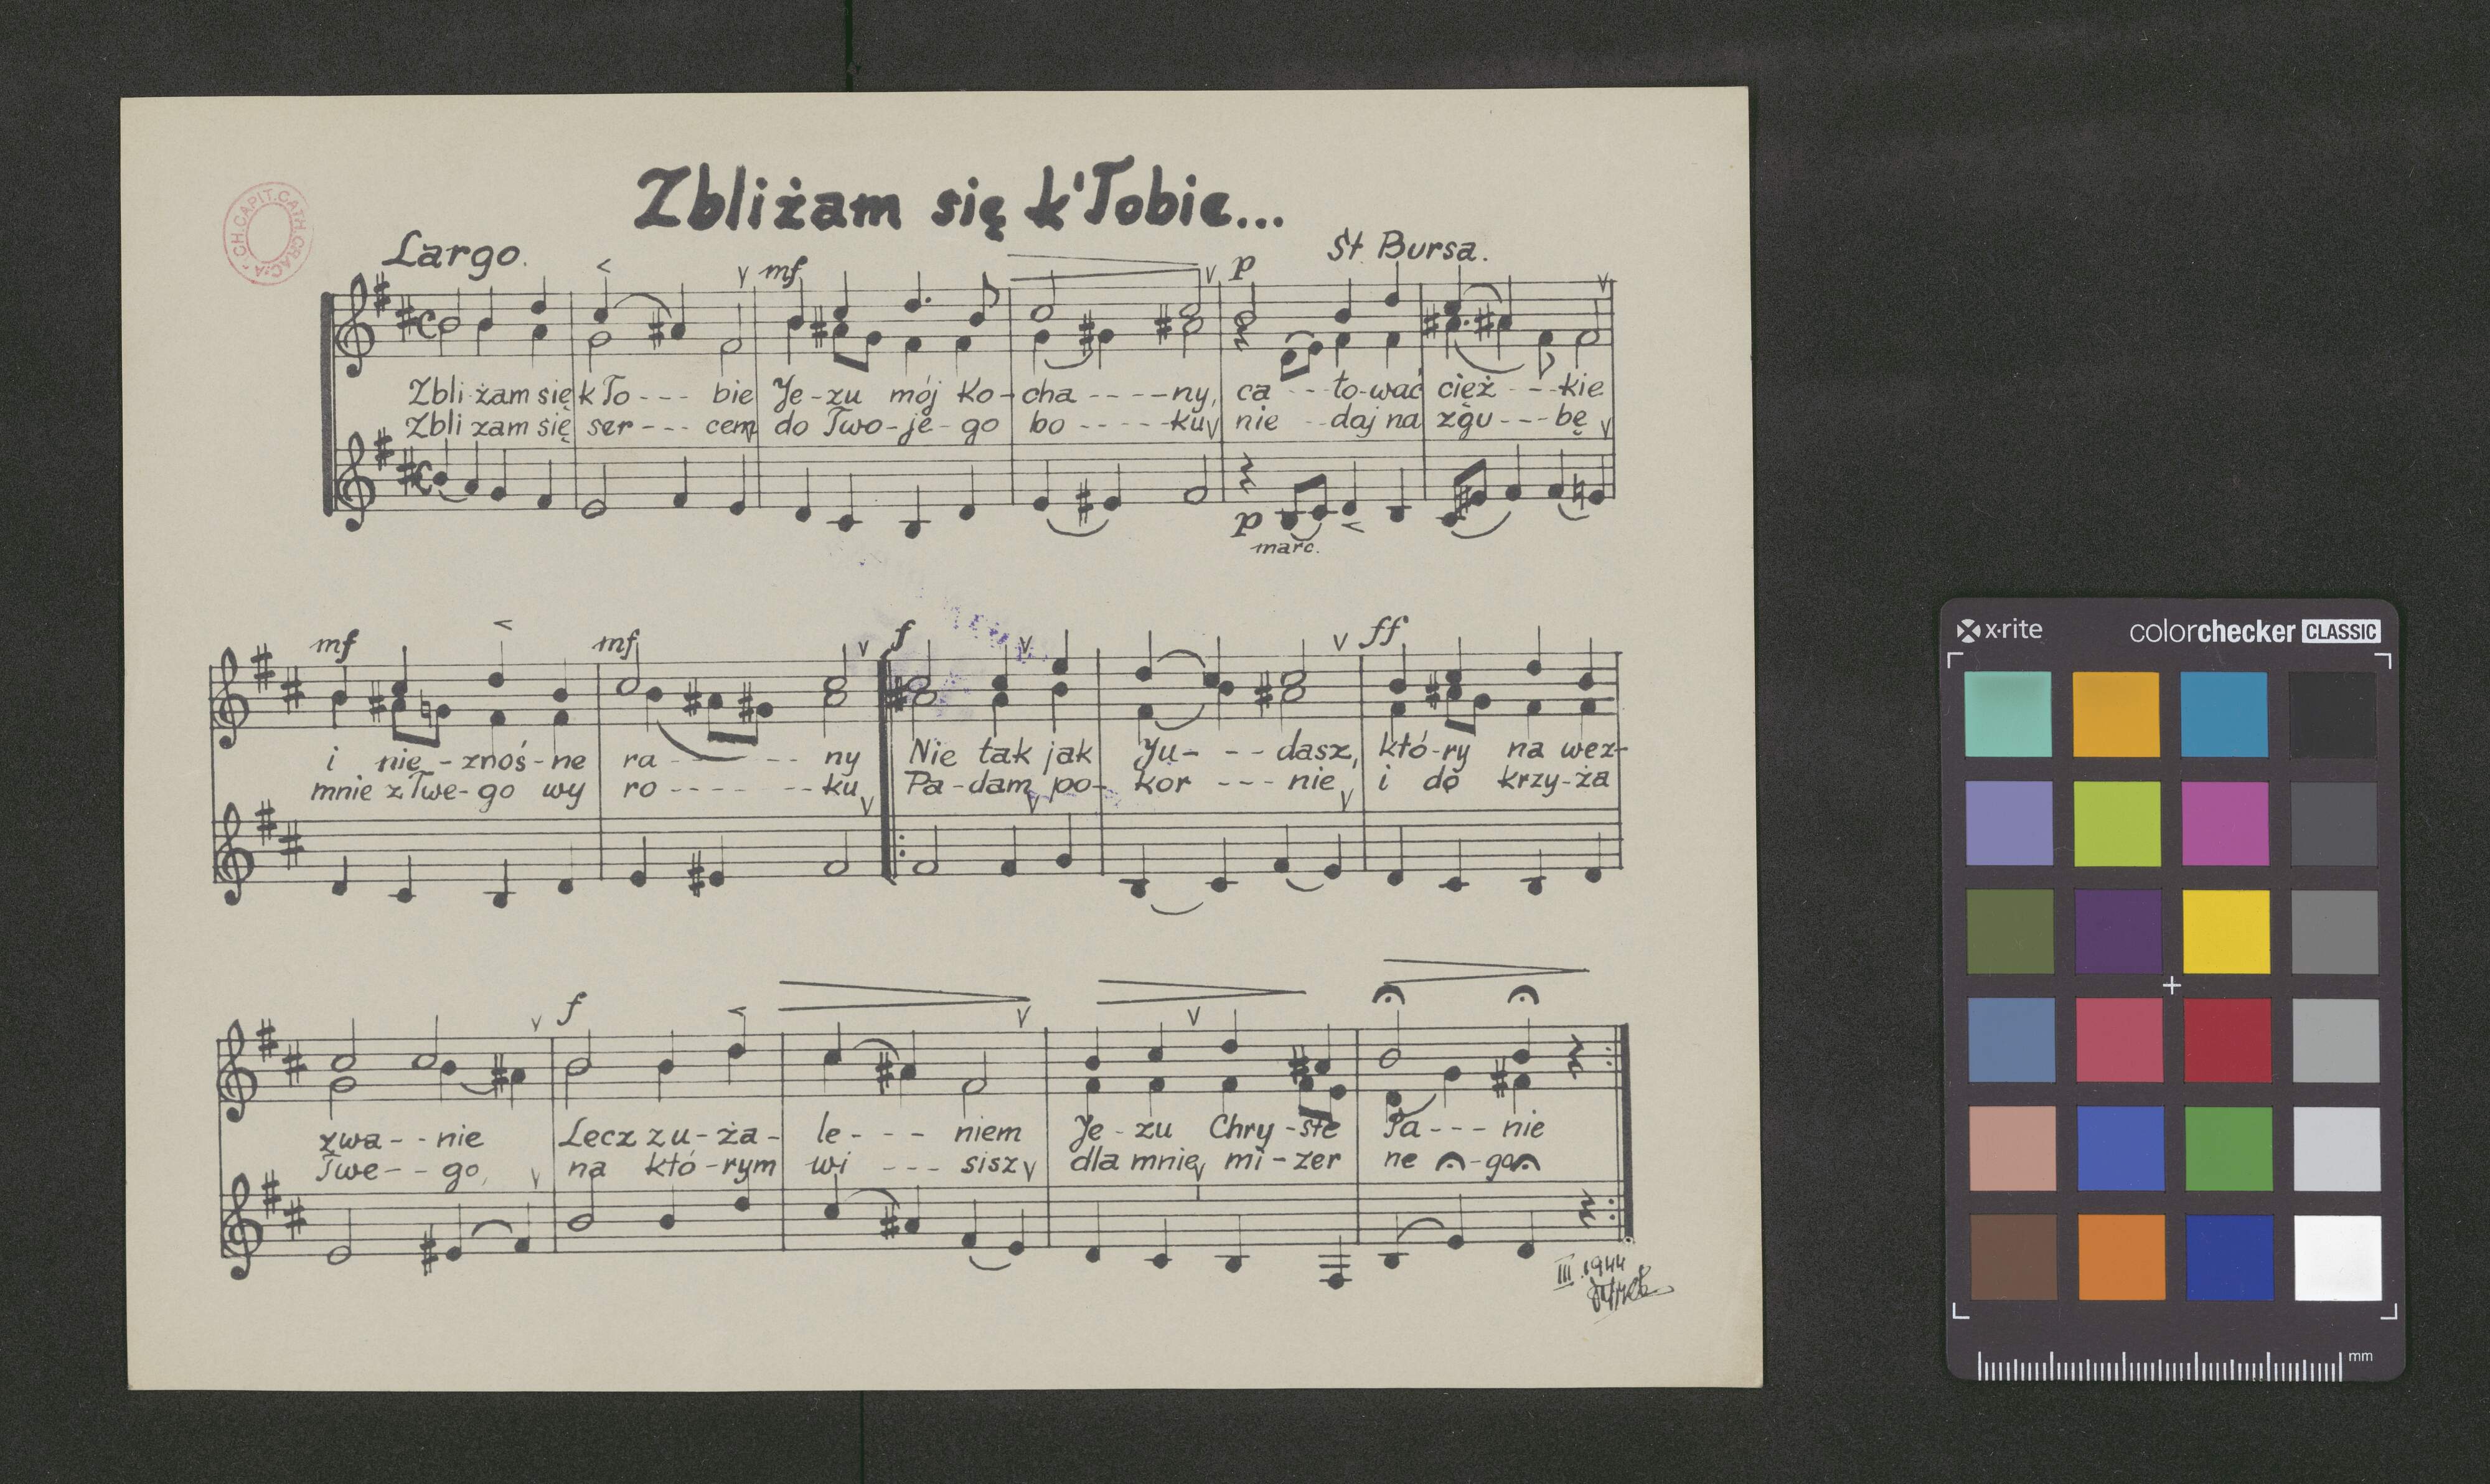 Zbliżam się k'Tobie...
ARCH.CAPIT.CATH.CRAC.
Largo.
St. Bursa.
mf
p
Zbli-żam się k To --- bie Je-zu mój Ko-cha ----ny, ca --to-wać cięż ---kie
Zbli żam się ser --- cem do Two-je-go bo ----ku nie --daj na zgu ---bę
p
marc.
mf mf f ff
i nie-znoś-ne ra ---- ny Nie tak jak Ju- -- dasz, któ-ry na wez-
mnie z Twe-go wy ro -----ku Pa-dam po-kor --- nie, i do krzy-ża
f
zwa--nie Lecz z u-ża-le--- niem Je-zu Chry-ste Pa--- nie
Twe--go, na któ-rym wi --- sisz dla mnie mi-zer ne -go
III.1944
x·rite
colorchecker CLASSIC
mm